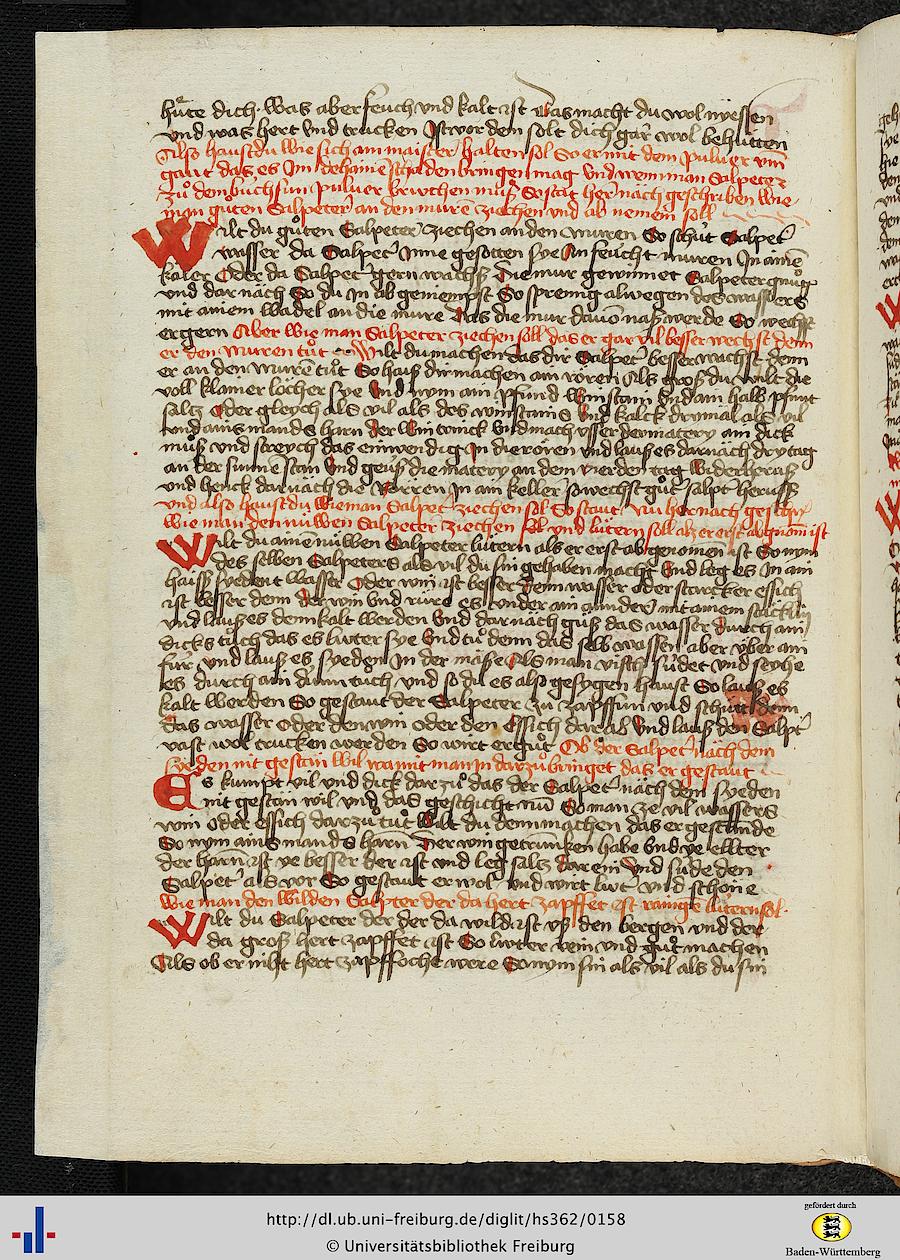 hüte dich · Was aber feucht vnd kalt ist Das macht du wol nyessen
vnd was hert vnd trucken Ist vor dem solt dich gar wol behütten
Also haustdu wie sich ain maister halten sol So er mit dem puluer vm
gaut das es Im dehaine schaden bringen mag Vnd wem man Salpeter
zů den büchssun puluer bruchen muß So stat her näch geschriben wie
man gůten Salpeter an den murē ziechen vnd ab nemem soll
Wilt du gůten Salpeter ziechen an den muren So schüt Salpet
wasser da Salpet Inne gesotten sye An feücht muren In aine
keler Oder da Salpet gern wachß Die mur gewinnet Salpeter gnůg
vnd dar näch So du In ab geniempst So spreng alwegen des wassers
mit ainem wadel an die mure Das die mur dauō naß werde So wechst
er gern Aber wie man Salpeter ziechen soll das er gar vil besser wechst denn
er an den muren tůt Wilt du machen das dir Salpet besser wachst denn
er an den murē tůt So haiß dir machen ain rören Als groß du wilt die
voll klainer löcher sye Vnd nym ain pfund winstain Vnd ain halb pfunt
saltz Oder gleych als vil als des winstains Vnd kalck drymal als vil
vnd ains mands harn der win trinck Vnd mach vsser der matery ain dick
můß vnd streych das einwendig In die rören vnd lauß es darnäch dry tag
an der sunne stan Vnd geuß die matery an dem vierden tag widerheruß
vnd henck darnäch die rörren In ain keller so wechst gůt salpet heruß
vnd also haustdu wie man Salpet ziechen sol So staut nu hernach geschrē
wie man den nüwen Salpeter ziechen sol vnd lütern soll als er erst abgnomē ist
Wilt du aine nüwen Salpeter lütern als er erst ab genomen ist So nym
des selben Salpeters als vil du sin gehaben macht Vnd leg es In ain
haiss syedent wasser Oder win ist besser denn wasser oder starcker essich
ist besser denn der win Vnd rüre es vnder ain ainder mit ainem stäcklin
vnd lauß es denn kalt werden Vnd dar näch güß das wasser durch ain
dicks tůch das es luter sye Vnd tů denn das selb wasser aber über ain
für vnd lauß es syeden In der mäße Als man visch südet vnd seyhe
es durch ain dünn tuch vnd so du es also gesygen haust So lauß es
kalt werden So gestaut der Salpeter zu zapffun vnd schütt denn
das wasser oder den win oder den Essich dar ab Vnd lauß den Salpet
vast wol trucken werden So wirt er gůt Ob der Salpet näch dem
syeden nit gestan wil wa mit man In dar zů bringet das er gestaut
Es kumpt vil vnd dick dar zů das der Salpet näch dem syeden
nit gestan wil vnd das geschicht nū So man ze vil wassers
win oder essich darzů tůt Wilt du denn machen das er gestande
So nym ains mands harn Der win getruncken habe vnd ye elter
der harn ist ye besser der ist vnd leg saltz dar ein vnd süde den
Salpet als vor So gestaut er wol vnd wirt lut vnd schöne
Wie man den wilden Salpeter der da hert zapffet ist rainigē lütern sol
Wilt du Salpeter der der da wild ist vß den bergen vnd der
da groß hert zapffet ist So luter rein vnd gůt machen
Als ob er nibt hert zapffoche were So nym sin als vil als du sin
http://dl.ub.uni-freiburg.de/diglit/hs362/0158
© Universitätsbibliothek Freiburg
gefördert durch
Baden-Württemberg